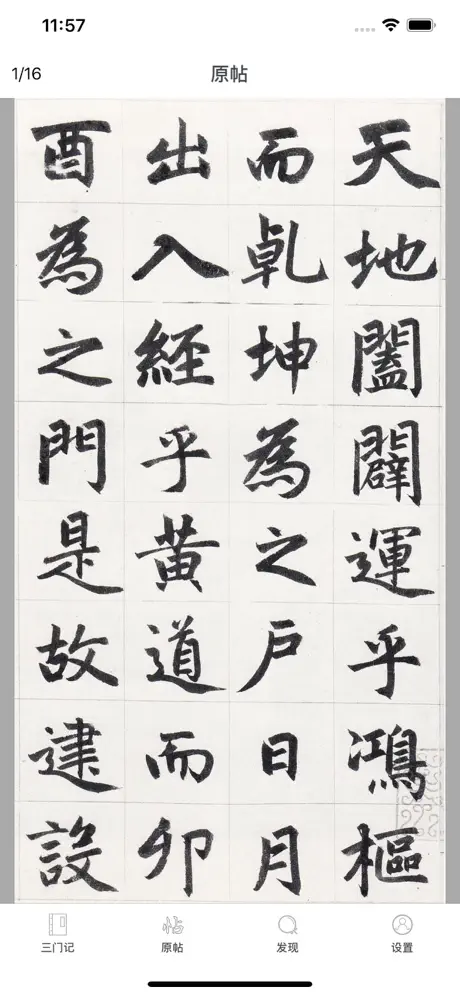 11:57
1/16
原帖
天地闔闢運乎鴻樞
而乹坤為之戶日月
出入經乎黃道而卯
酉為之門是故建設
三门记
原帖
发现
设置